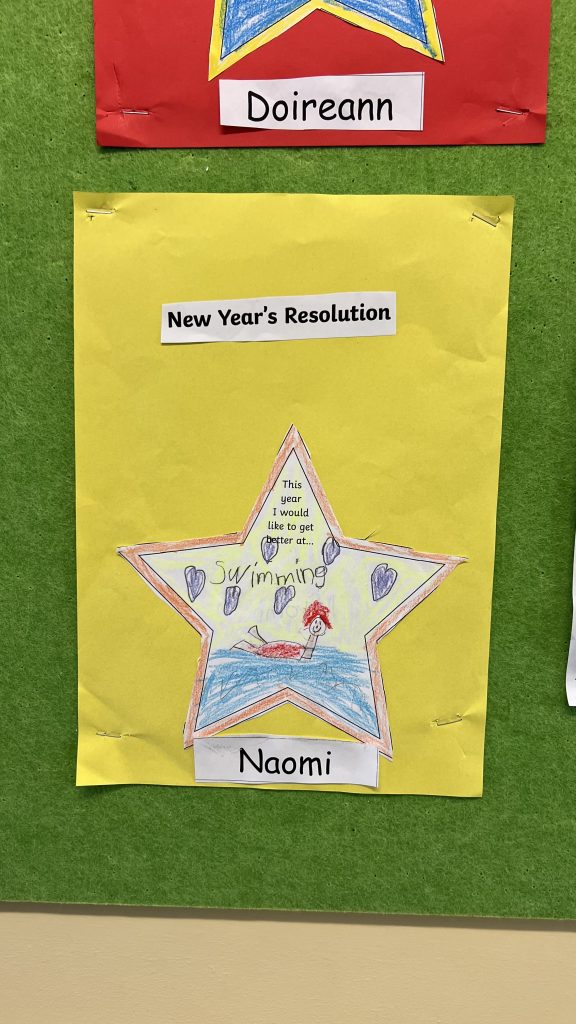 Doireann
New Year's Resolution
This
year
I would
like to get
better at...
Swimming
Naomi